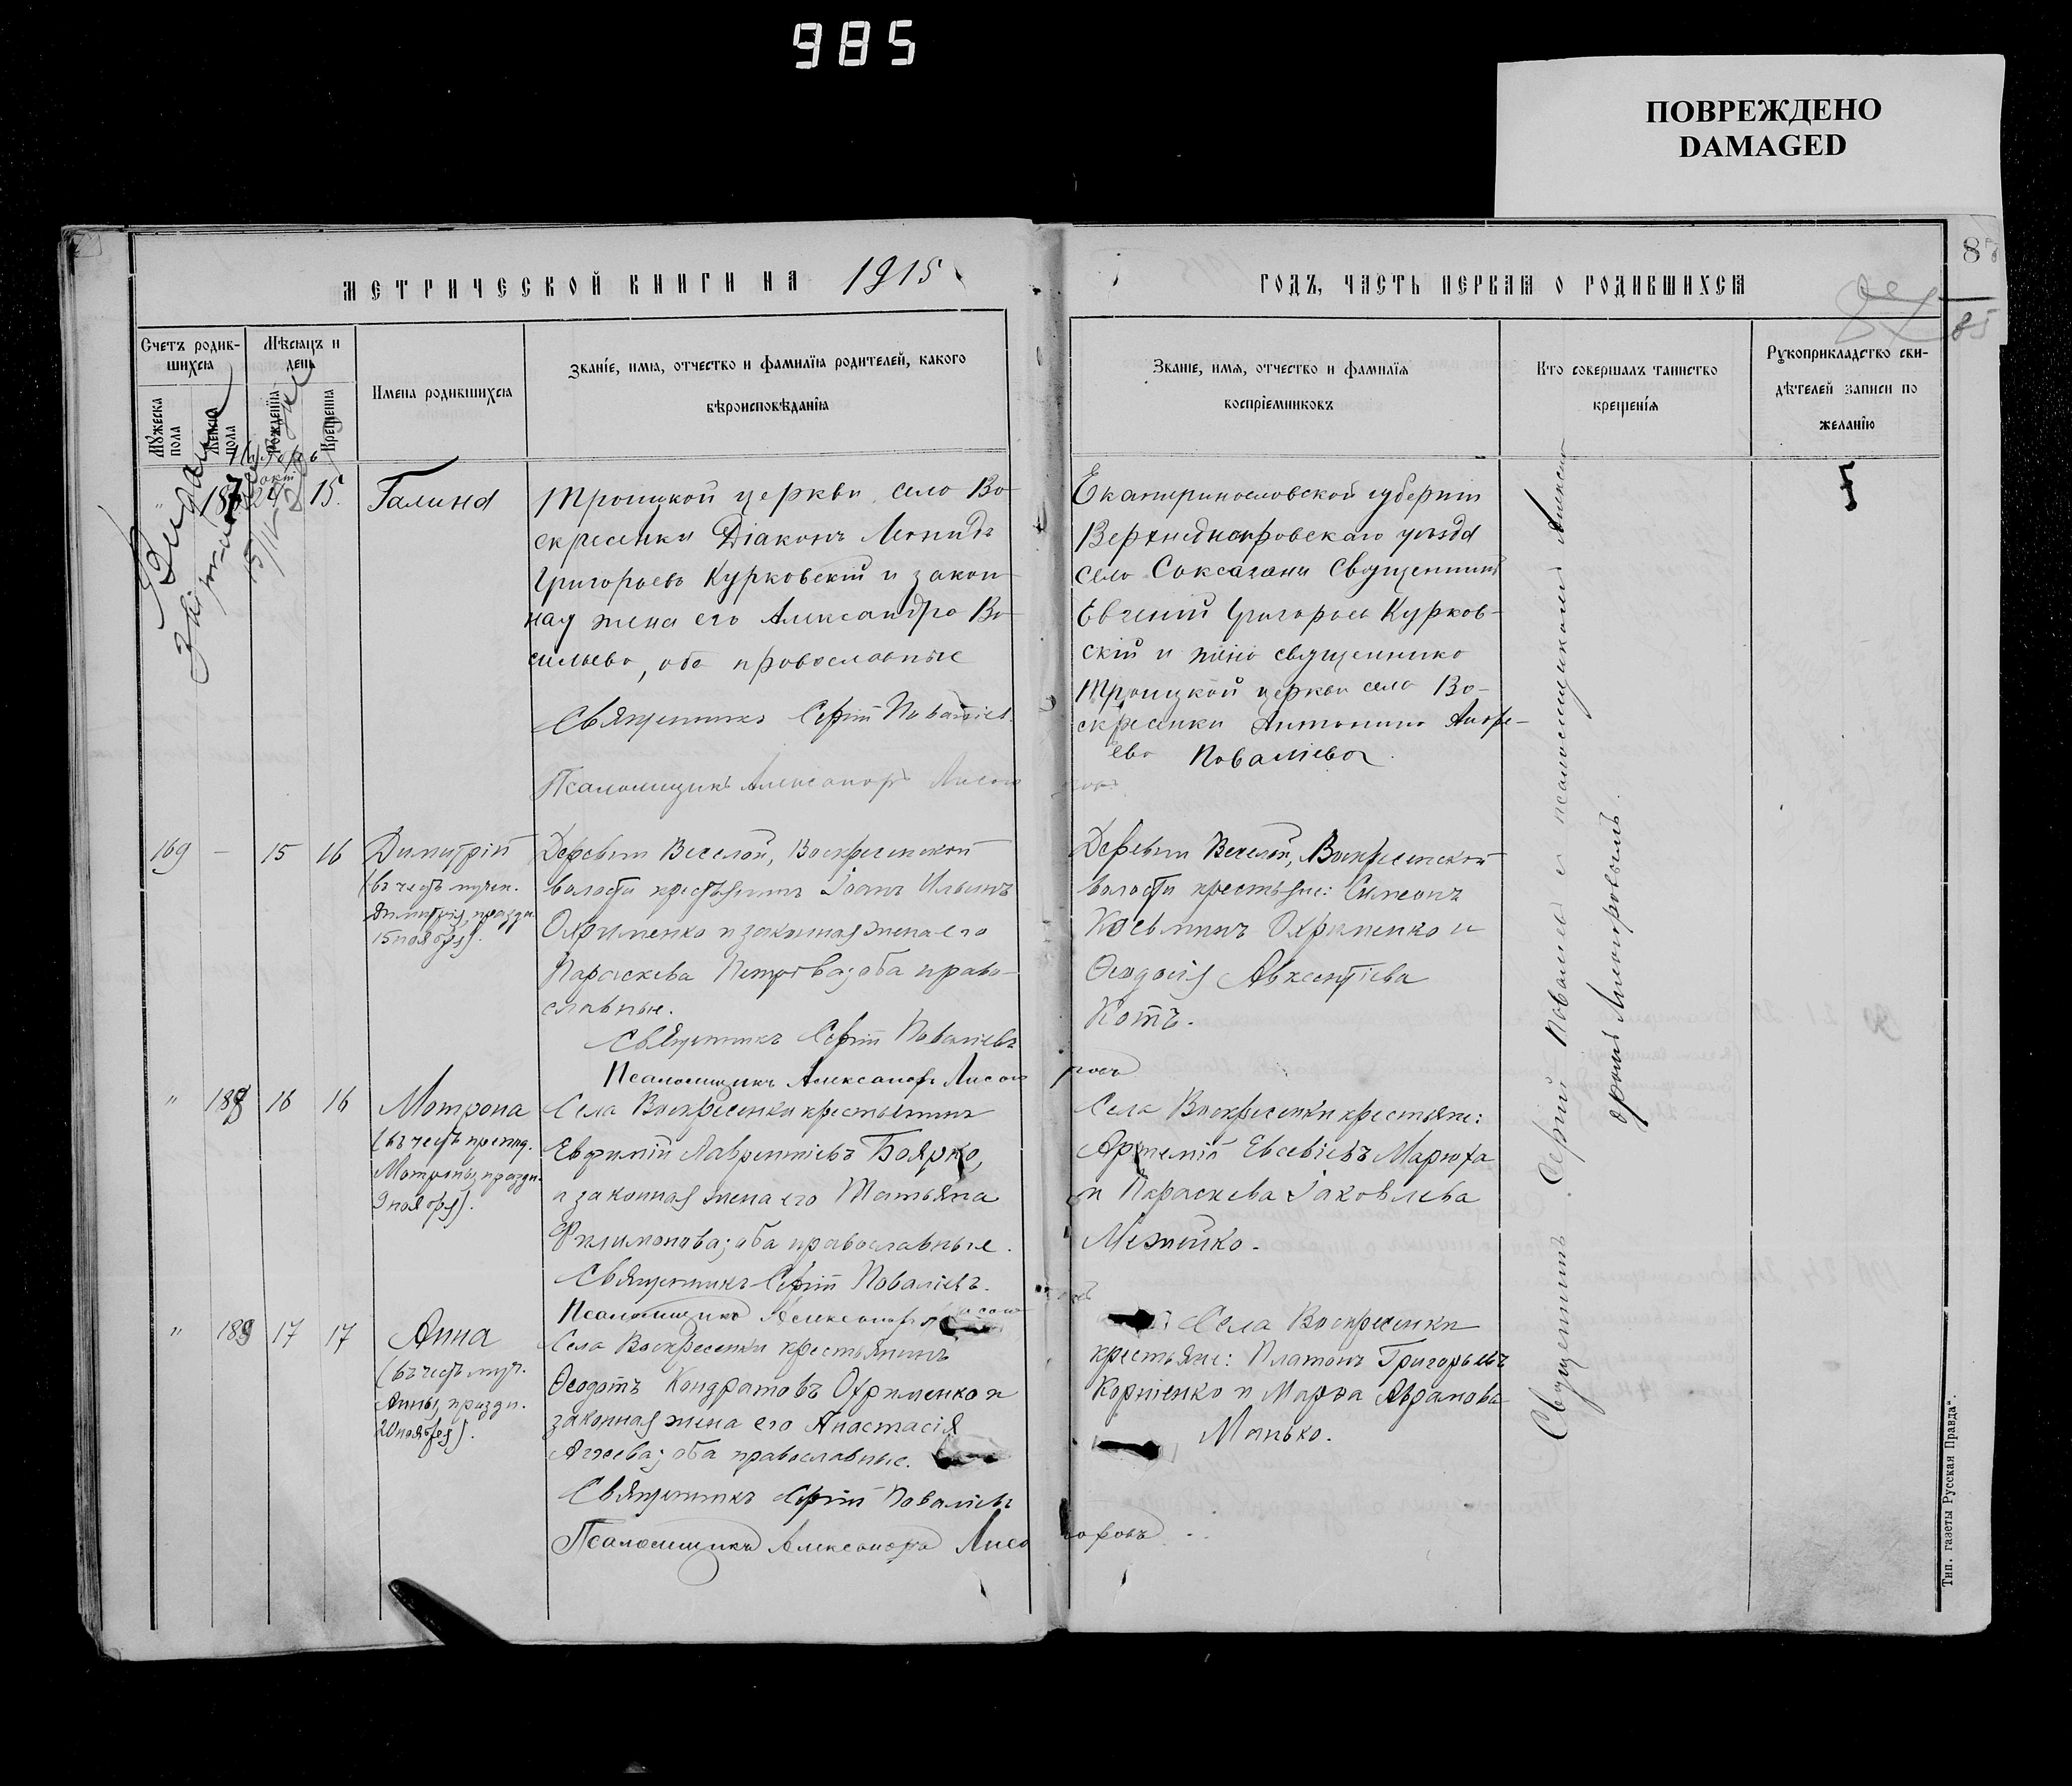 985
ПОВРЕЖДЕНО
DAMAGED
МЕТРИЧЕСКОЙ КНИГИ НА 1915
ГОДЪ, ЧАСТЬ ПЕРВАЯ О РОДИВШИХСЯ
85
Счетъ родив-
шихся
Мужеска пола
Женска пола
Мѣсяцъ и
день
Рожденія
Крещенія
Имена родившихся
Званіе, имя, отчество и фамилія родителей, какого
вѣроисповѣданія
Званіе, имя, отчество и фамилія
воспріемниковъ
Кто совершалъ таинство
крещенія
Рукоприкладство сви-
дѣтелей записи по
желанію
15.
Галина
Троицкой церкви село Во-
скресенки Діаконъ Леонидъ
Григорьевъ Курковскій и закон-
ная жена его Александра Ва-
сильева, оба православные
Священникъ Сергій Поваліевъ
Псаломщикъ Александръ
Екатеринославской губерніи
Верхнеднѣпровскаго уѣзда
село Саксагани Священникъ
Евгеній Григорьевъ Курков-
скій и жена священника
Троицкой церкви села Во-
скресенки Антонина Андре-
ева Поваліева.
169 — 15 16 Димитрій
(въ честь мучен.
Димитрія, праздн.
15 ноября).
Деревни Веселой, Воскресенской
волости крестьянинъ Іоаннъ Ильинъ
Охрименко и законная жена его
Параскева Петрова; оба право-
славные.
Священникъ Сергій Поваліевъ
Псаломщикъ Александръ
Деревни Веселой, Воскресенской
волости крестьяне: Симеонъ
Косьминъ Охрименко и
Ѳеодосія Авксентіева
Котъ.
" 188 16 16 Мотрона
(въ честь препод.
Мотроны, праздн.
9 ноября).
Села Воскресенки крестьянинъ
Евфимій Лаврентіевъ Боярко,
и законная жена его Татьяна
Филимонова; оба православные.
Священникъ Сергій Поваліевъ.
Псаломщикъ Александръ
Села Воскресенки крестьяне:
Артемій Евсевіевъ Марюха
и Параскева Іаковлева
" 189 17 17 Анна
(въ честь муч.
Анны, праздн.
20 ноября).
Села Воскресенки крестьянинъ
Ѳеодотъ Кондратовъ Охрименко и
законная жена его Анастасія
оба православные.
Священникъ Сергій Поваліевъ
Псаломщикъ Александръ
Села Воскресенки
крестьяне: Платонъ Григорьевъ
Корніенко и Марѳа
Манько.
Священникъ Сергій Поваліевъ и псаломщикомъ Алексан-
дромъ
Тип. газеты Русская Правда".